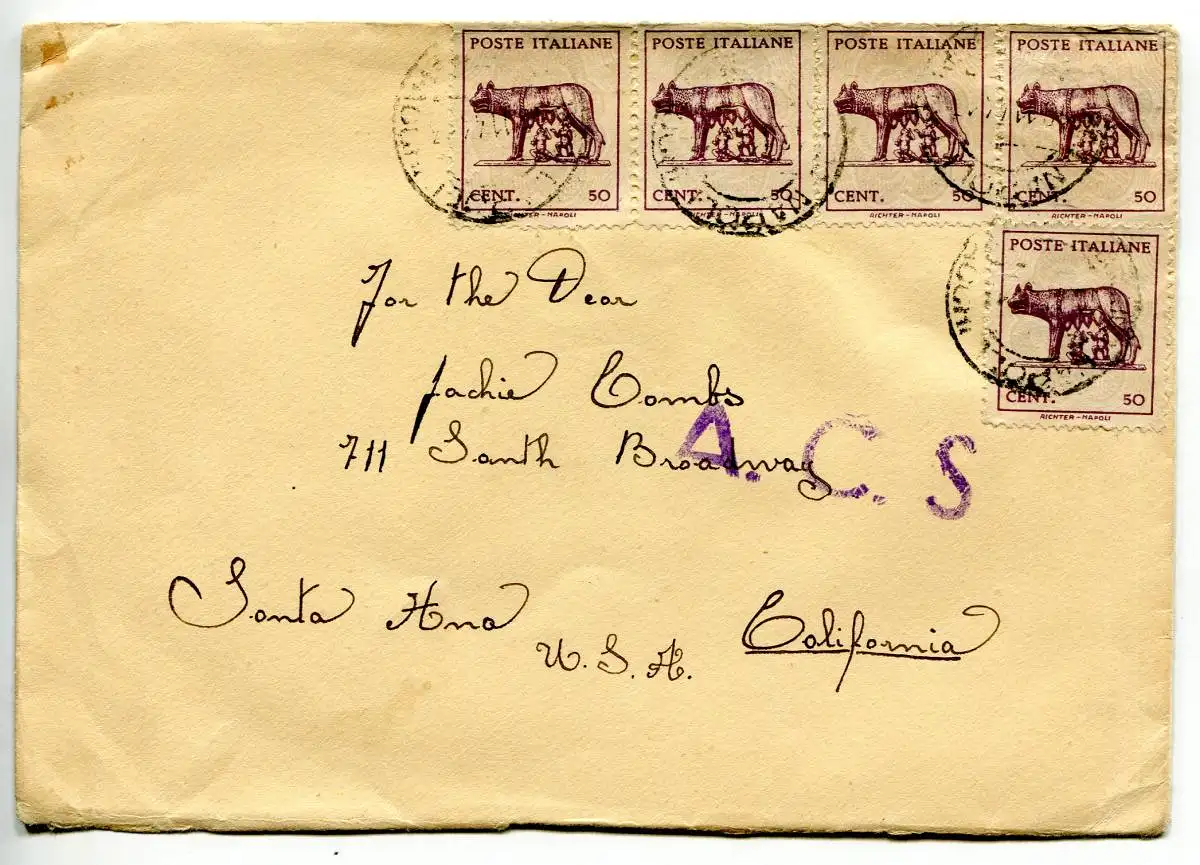 POSTE ITALIANE POSTE ITALIANE POSTE ITALIANE POSTE ITALIANE
CENT. 50 CENT. 50 CENT. 50 CENT. 50
RICHTER - NAPOLI RICHTER - NAPOLI RICHTER - NAPOLI RICHTER - NAPOLI
POSTE ITALIANE
CENT. 50
RICHTER - NAPOLI
For the Dear
Jachie Combs
711 Santh Broadway
A. C. S
Santa Ana
California
U. S. A.